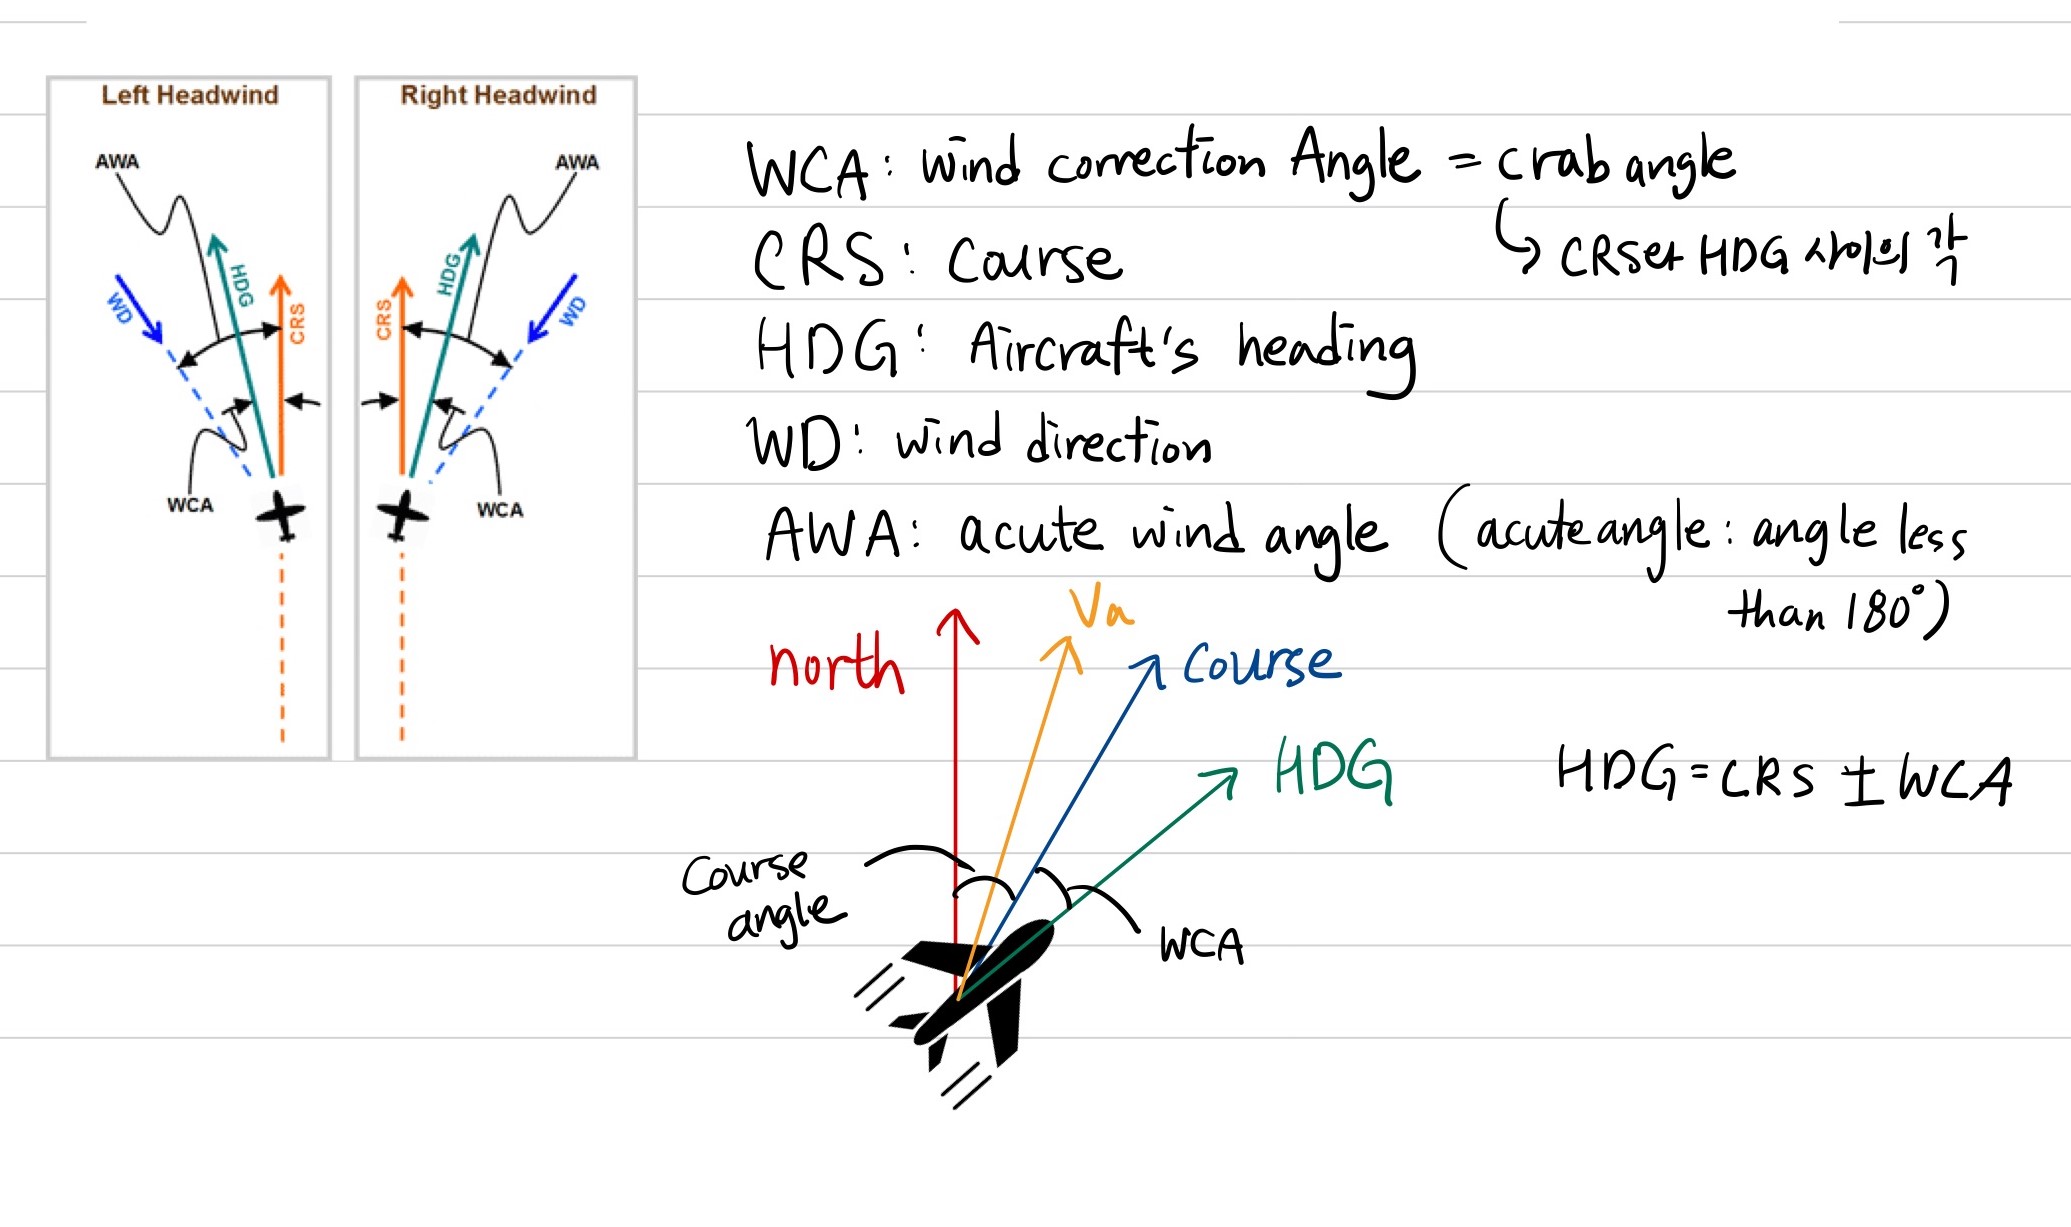 Left Headwind
AWA
HDG
WD
CRS
WCA
Right Headwind
AWA
HDG
CRS
WD
WCA
WCA: wind correction Angle = crab angle
↳ CRS와 HDG 사이의 각
CRS: Course
HDG: Aircraft's heading
WD: wind direction
AWA: acute wind angle (acute angle: angle less
than 180°)
north
Va
Course
HDG
HDG = CRS ± WCA
Course
angle
WCA